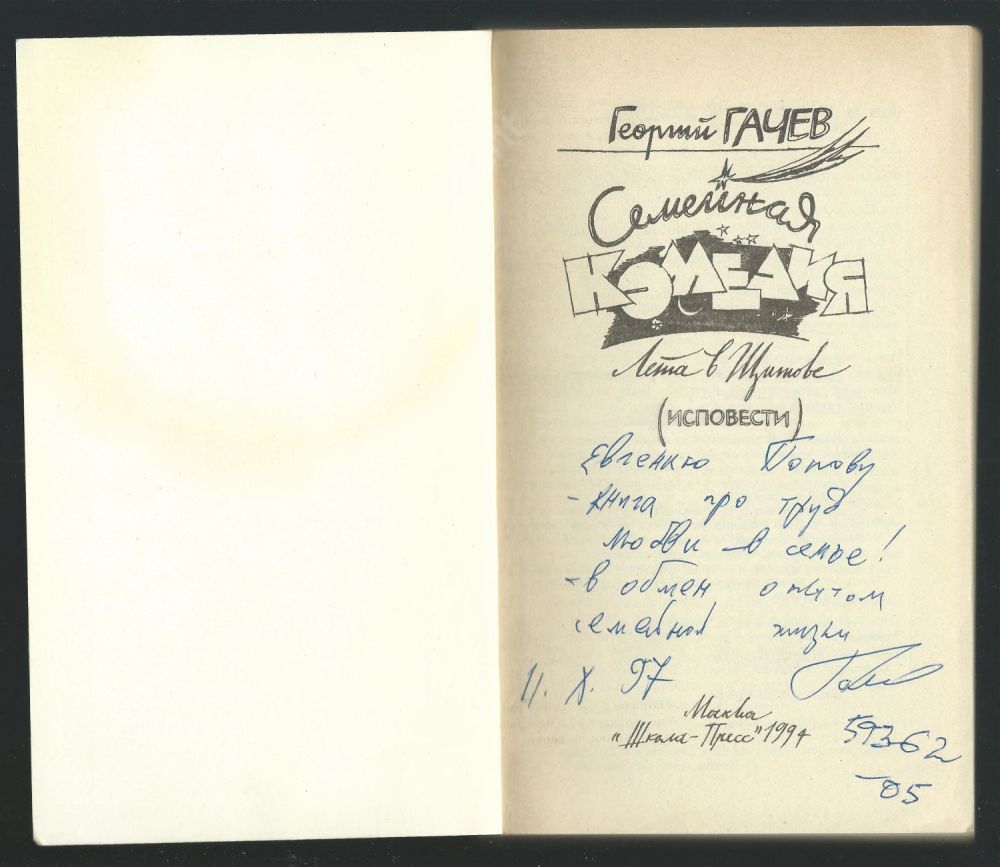 Георгий ГАЧЕВ
Семейная
КОМЕДИЯ
Лета в Щитове
(ИСПОВЕСТИ)
Евгению Попову
- книга про труд
любви – в семье!
- в обмен опытом
семейной жизни
11. X. 97
Москва
"Школа-Пресс" 1994
593-62
-05